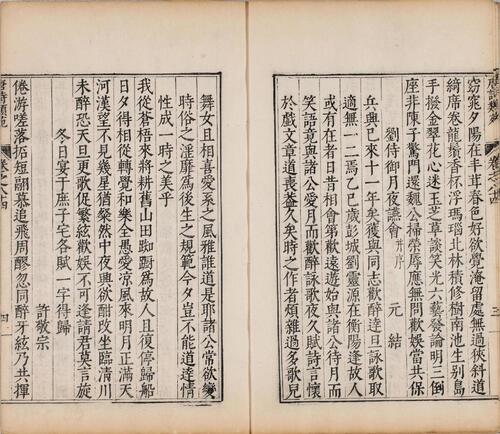 窈窕夕陽在丰茸春色好欲覺淹留處無過狹斜道
綺席卷龍鬚香杯浮瑪瑙北林積修樹南池生别島
手撥金翠花心迷玉芝草談笑光六藝發論明三倒
座非陳子驚門還魏公掃榮辱應無間歡娛當共保
劉侍御月夜讌會并序
元結
兵興已來十一年矣獲與同志歡醉達旦詠歌取
適無一二焉乙巳歲彭城劉靈源在衡陽逢故人
或有在者日昔相會第歡遠遊始與諸公待月而
笑語竟與諸公愛月而歡醉詠歌夜久賦詩言懷
於戲文章道喪蓋久矣時之作者煩雜過多歌兒
三
舞女且相喜愛系之風雅誰道是耶諸公嘗欲變
時俗之淫靡為後生之規範今夕豈不能道達情
性成一時之美乎
我從蒼梧來將耕舊山田踟蹰為故人且復停歸船
日夕得相從轉覺和樂全愚愛涼風來明月正滿天
河漢望不見幾星猶粲然中夜興欲酣改坐臨清川
未醉恐天旦更歌促繁絃歡娛不可逢請君莫言旋
冬日宴于庶子宅各賦一字得歸
許敬宗
倦游嗟落拓短翮慕追飛周醪忽同醉牙絃乃共揮
四